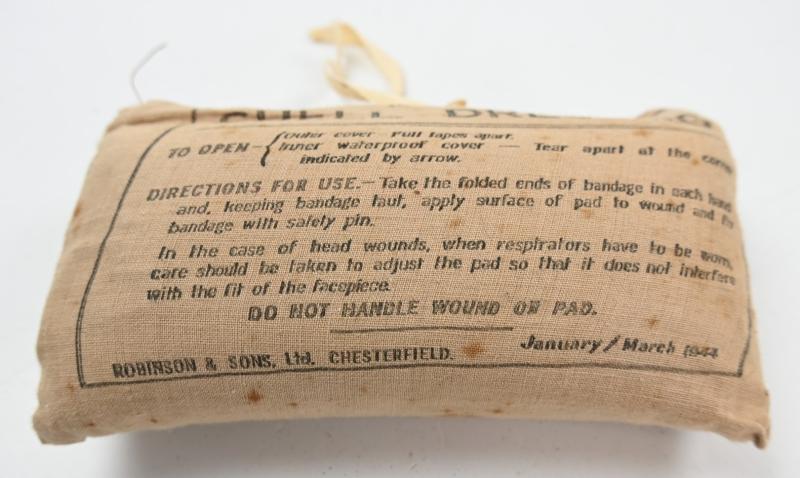 TO OPEN— Outer cover Pull tapes apart.
Inner waterproof cover — Tear apart at the corner
indicated by arrow.
DIRECTIONS FOR USE.—Take the folded ends of bandage in each hand
and, keeping bandage taut, apply surface of pad to wound and fix
bandage with safety pin.
In the case of head wounds, when respirators have to be worn,
care should be taken to adjust the pad so that it does not interfere
with the fit of the facepiece.
DO NOT HANDLE WOUND OR PAD.
January/March 1944
ROBINSON & SONS, Ltd. CHESTERFIELD.